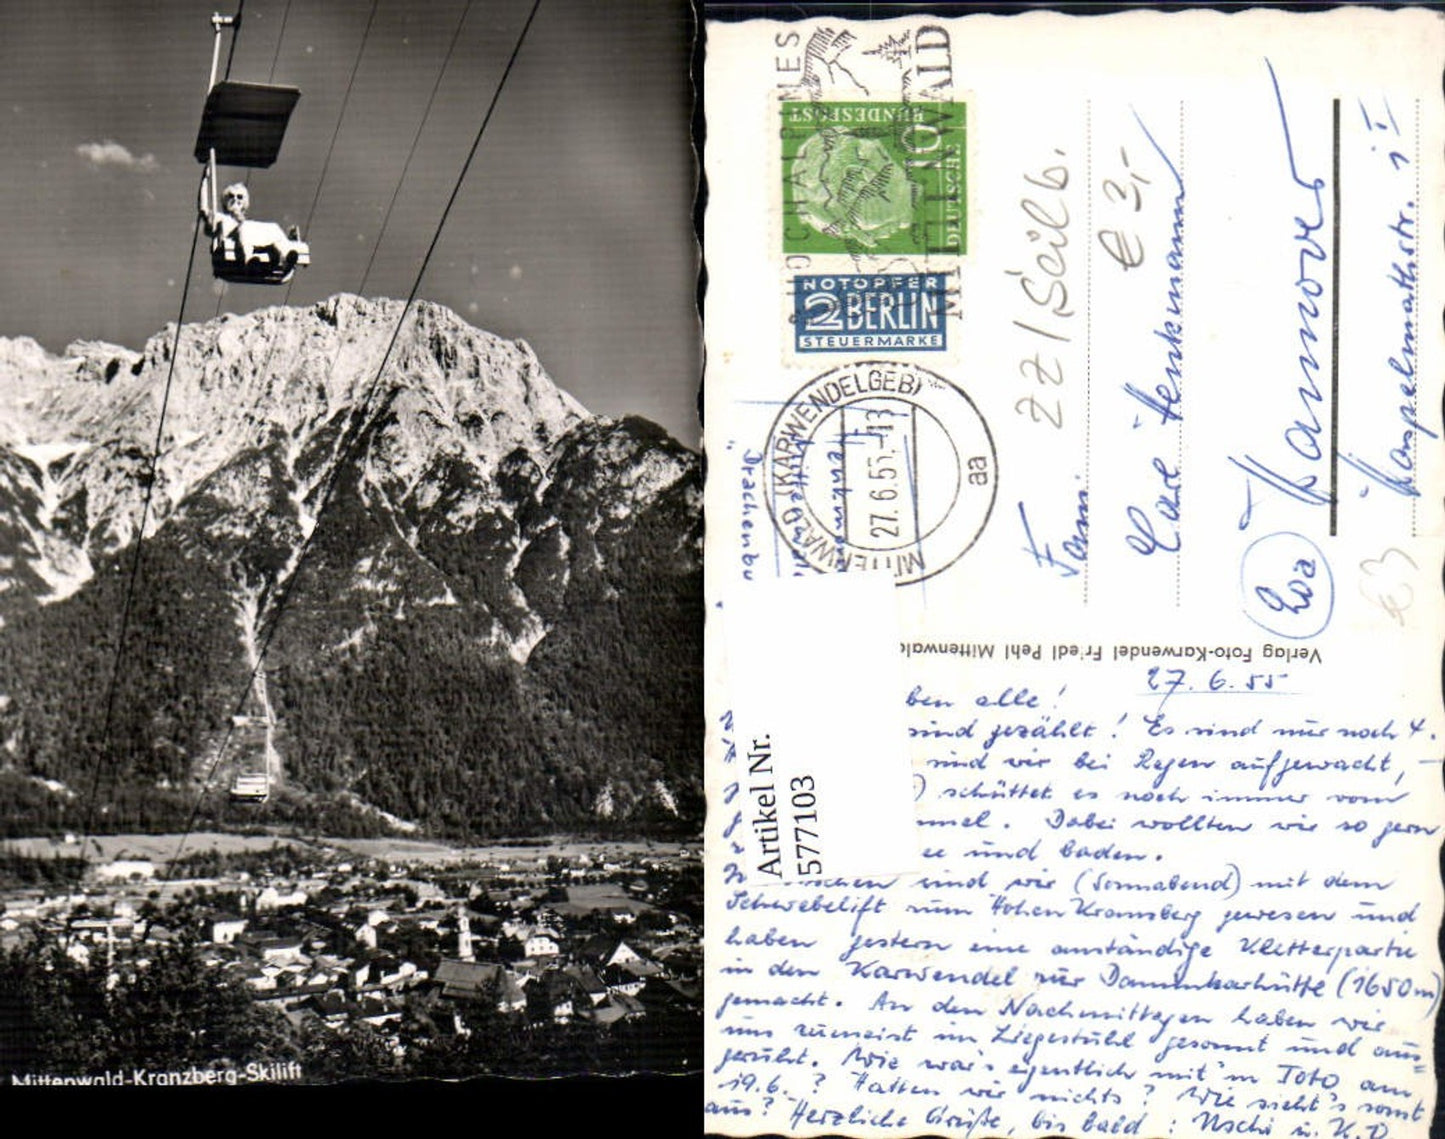 Mittenwald-Kranzberg-Skilift
MITTENWALD
DEUTSCHE
BUNDESPOST
10
NOTOPFER
2 BERLIN
STEUERMARKE
MITTENWALD (KARWENDELGEB)
27.6.55.-13
aa
ZZ/Seilb.
€ 3,-
Fam.
Hannover
20a
Haspelmathstr.
€3
Mittenwald
"Drachenbu
Verlag Foto-Karwendel Friedl Pehl Mittenwald
Artikel Nr.
577103
27.6.55
ben alle!
sind gezählt! Es sind nur noch 4.
sind wir bei Regen aufgewacht, –
) schüttet es noch immer vom
mel. Dabei wollten wir so gern
ee und baden.
sind wir (Sonnabend) mit dem
Schwebelift zum Hohen Kranzberg gewesen und
haben gestern eine anständige Kletterpartie
in den Karwendel zur Dammkarhütte (1650m)
gemacht. An den Nachmittagen haben wir
uns zumeist im Liegestuhl gesonnt und aus=
geruht. Wie war's eigentlich mit'm Toto am
19.6.? Hatten wir nichts? Wie sieht's sonst
aus? Herzliche Grüße, bis bald: Uschi u. K.D.